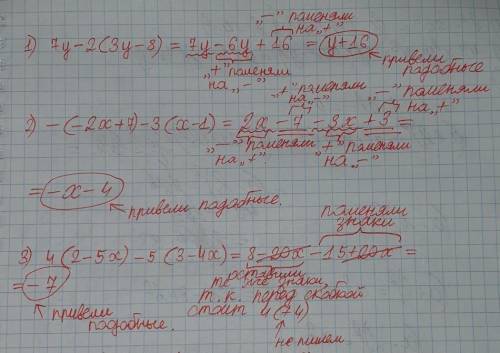 „–" поменяли на „+"
1) 7y-2(3y-8) = 7y-6y+16 = y+16
„+" поменяли на „–"
привели подобные
„+" поменяли на „–"
„–" поменяли на „+"
2) -(-2x+7)-3(x-1) = 2x-7-3x+3 =
„–" поменяли на „+"
„+" поменяли на „–"
= -x-4
привели подобные.
поменяли знаки
3) 4(2-5x)-5(3-4x) = 8-20x-15+20x =
= -7
привели подобные.
оставили
те же знаки,
т.к. перед скобкой
стоит 4 (+4)
не пишем